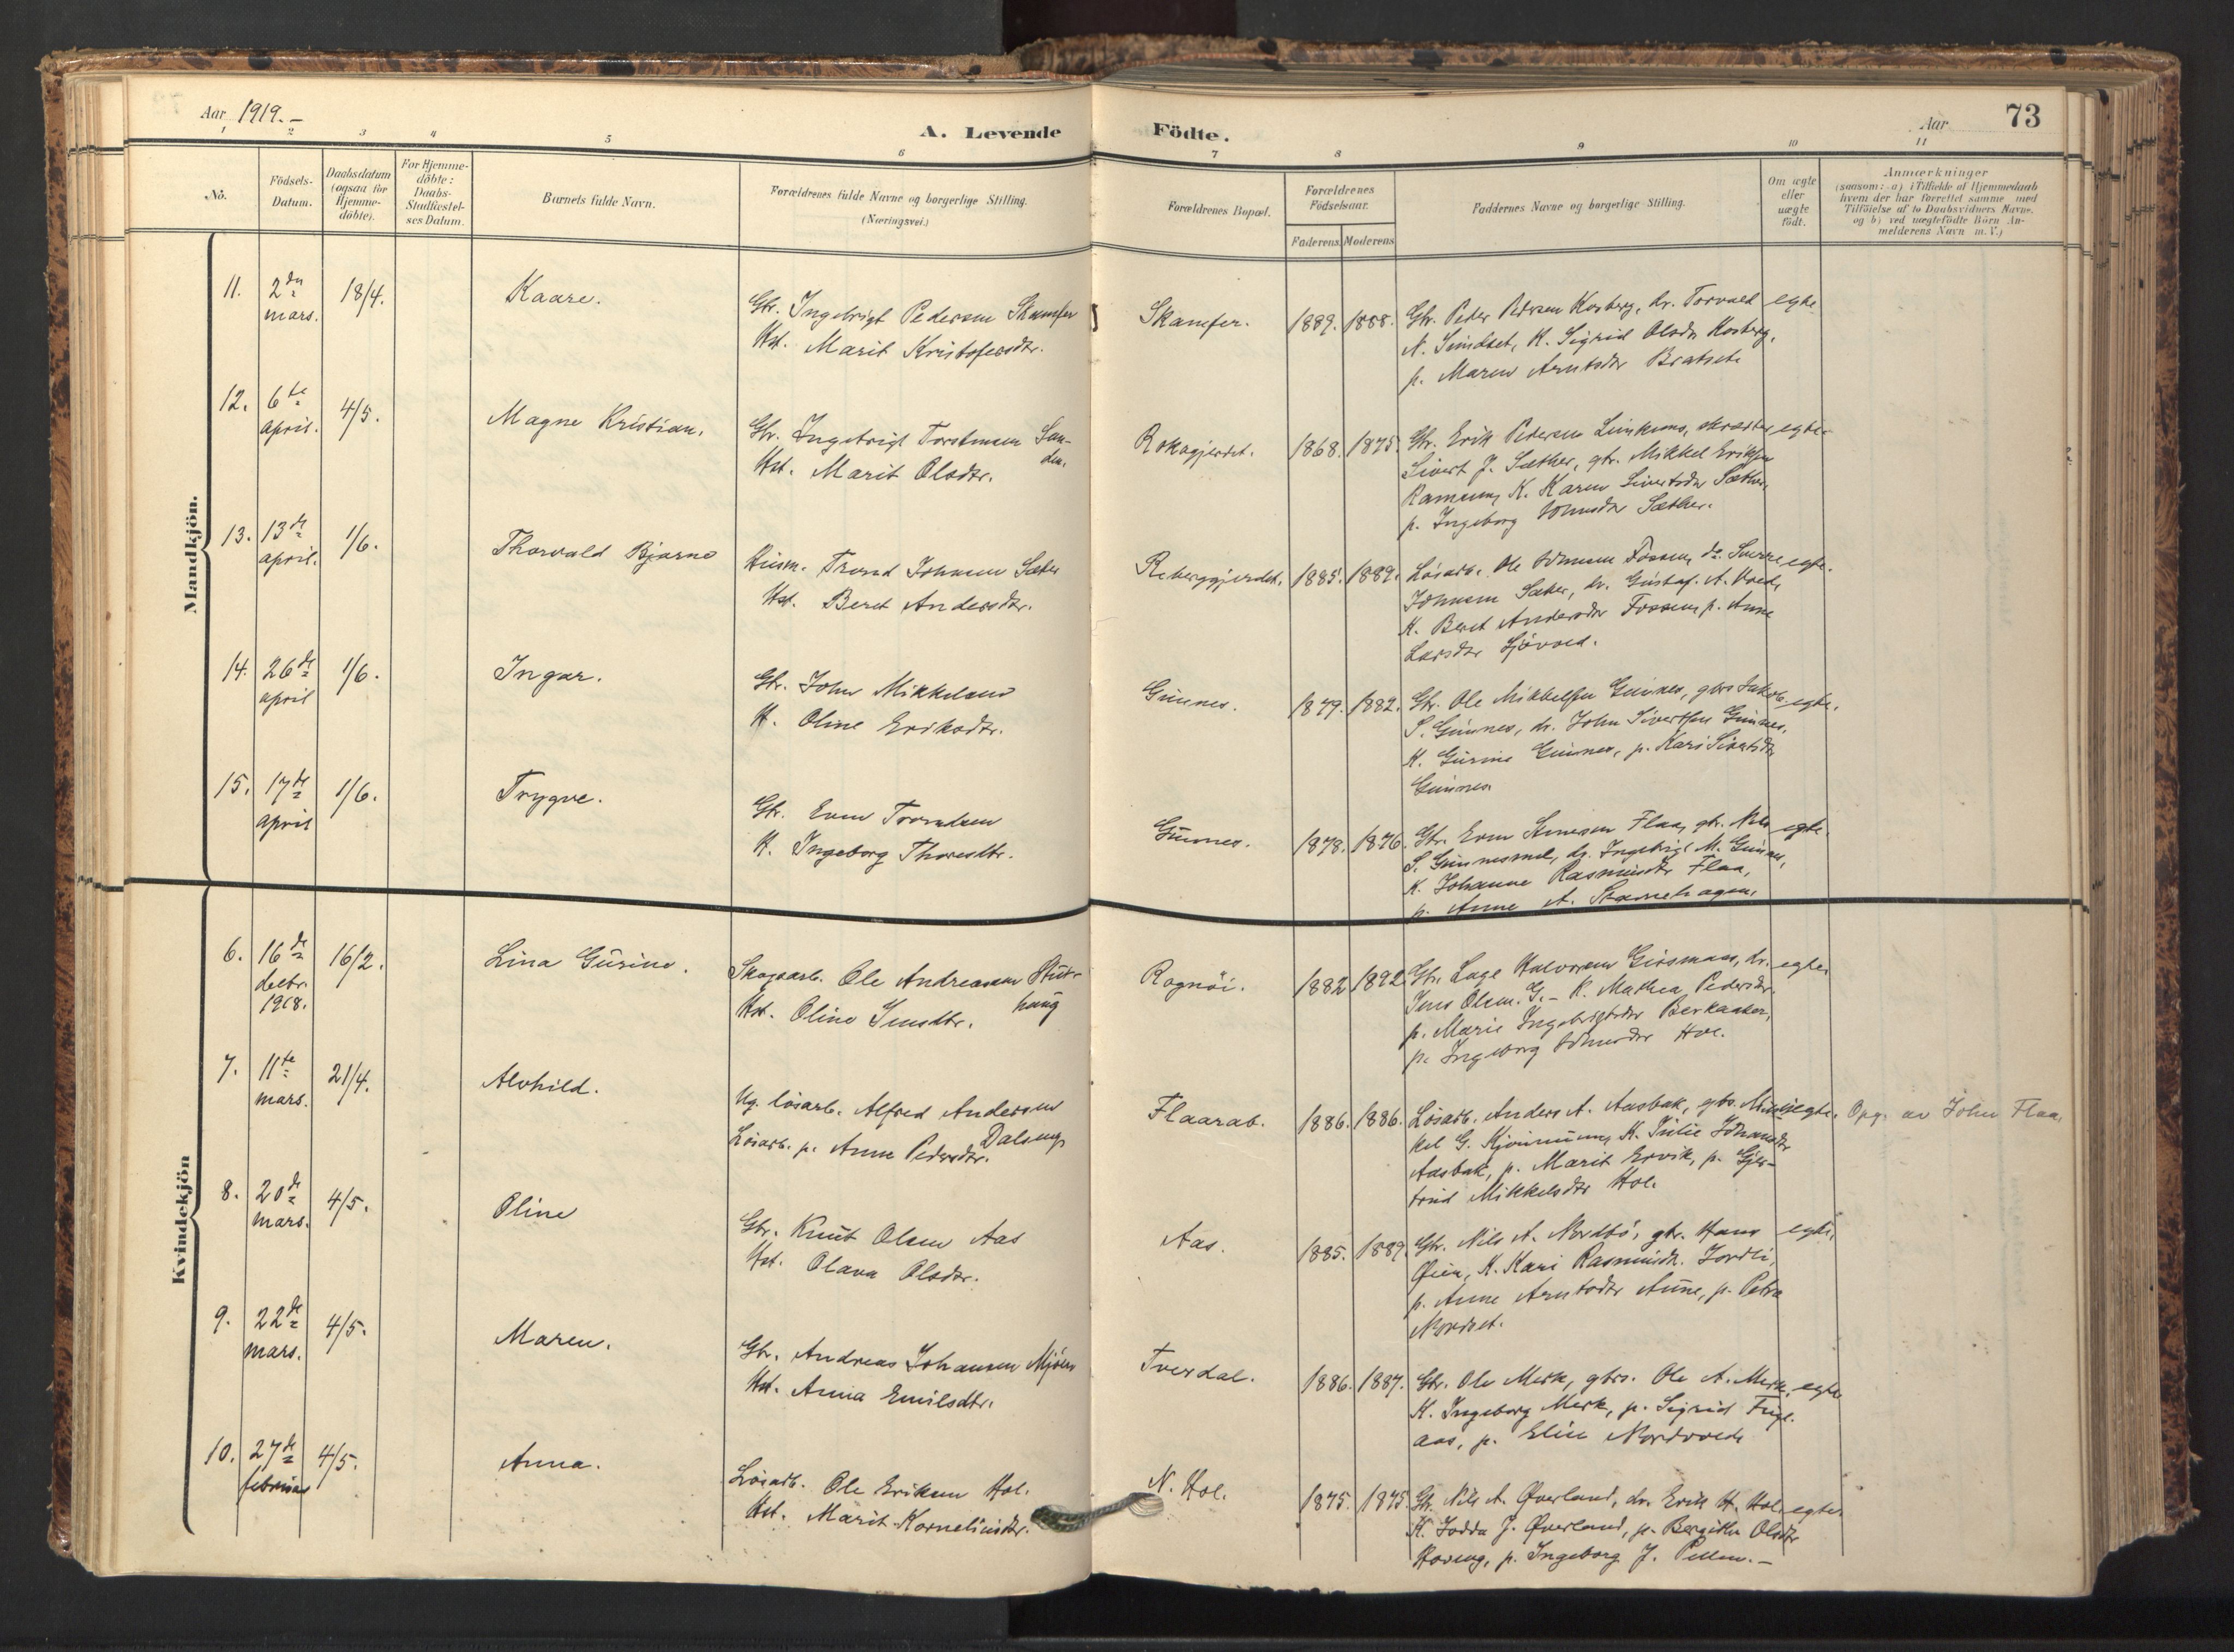 Aar 1919.-
A. Levende Födte.
Aar
73
1 2 3 4 5 6 7 8 9 10 11
No.
Födsels-
Datum.
Daabsdatum
(ogsaa for
Hjemme-
döbte).
For Hjemme-
döbte:
Daabs-
Stadfæstel-
ses Datum.
Barnets fulde Navn.
Forældrenes fulde Navne og borgerlige Stilling.
(Næringsvei.)
Forældrenes Bopæl.
Forældrenes
Födselsaar.
Faderens. Moderens
Faddernes Navne og borgerlige Stilling.
Om ægte
eller
uægte
födt.
Anmærkninger
(saasom: a) i Tilfælde af Hjemmedaab
hvem der har forrettet samme med
Tilföielse af to Daabsvidners Navne,
og b) ved uægtefödte Börn An-
melderens Navn m.V.)
Mandkjön.
11. 2den mars. 18/4. Kaare.
Gbr. Ingebrigt Pedersen Skamfer
Hst. Marit Kristofersdtr.
Skamfer. 1889. 1888.
Gbr. Peder Pedersen Kosberg, dr. Torvald
N. Simdset, K. Sigrid Olsdtr Kosberg,
p. Maren Arntsdtr Bratset.
egte
12. 6te april. 4/5. Magne Kristian.
Gbr. Ingebrigt Torstensen San-
den.
Hst. Marit Olsdtr.
Rokagjerdet. 1868. 1875.
Gbr. Erik Pedersen
Sivert J. Sæther, gbr. Mikkel Eriksen
K. Karen Sivertsdtr Sæther,
p. Ingeborg Johnsdtr Sæther.
egte
13. 13de april. 1/6. Thorvald Bjarne
Husm. Trond Johnsen Sæter
Hst. Beret Andersdtr.
Reberggjerdet. 1885. 1889.
Løsarb. Ole Johnsen Fossem, dr. Sverre
Johnsen Sæter, dr. Gustaf A. Hoel,
K. Beret Andersdtr Fossem, p. Anne
Larsdtr
egte.
14. 26de april 1/6. Ingar.
Gbr. John Mikkelsen
H. Oline Eriksdtr.
Gunnes. 1879. 1882.
Gbr. Ole Mikkelsen Gunnes, gbrs Jakob
S. Gunnes, dr. John Sivertsen Gunnes,
K. Gurine Gunnes, p. Kari Sivertsdtr
Gunnes
egte.
15. 17de april 1/6. Trygve.
Gbr. Even Trondsen
H. Ingeborg Thoresdtr.
Gunnes. 1878. 1876.
Gbr. Even Flaa, gbr. Nils
S. Gunnesmel, dr. Ingebrigt M. Gunnes,
K. Johanne Rasmusdtr Flaa,
p. Anne A.
egte.
Kvindekjön
6. 16de decbr. 1918. 16/2. Lina Gurine.
Skogsarb. Ole Andreassen Stut-
haug
Hst. Oline Jensdtr.
Rognöi. 1882 1892
Gbr. Lage Halvorsen Girsmaas, dr.
Jens Olsen. G.- K. Mathea Pedersdtr.
p. Marie Ingebrigtsdtr Berkaaken,
p. Ingeborg Johnsdtr Hol.
egte
7. 11te mars. 21/4. Alvhild.
Ug. løsarb. Alfred Andersen
Dalseng
Løsarb. p. Anne Pedersdtr.
Flaarab. 1886. 1886.
Løsarb. Anders A. Aasbak, gbs. Mik-
kel G. K. Julie Johansdtr
Aasbak, p. Marit Ervik, p. Gjer-
trud Mikkelsdtr Hol.
uegte. Opg. av John Flaa.
8. 20de mars. 4/5. Oline
Gbr. Knut Olsen Aas
Hst. Olava Olsdtr.
Aas. 1885. 1889.
Gbr. Nils A. Nordbö, gbr. Hans
Øien, K. Kari Rasmusdtr. Jordli,
p. Anne Arntsdtr Aune, p. Petra
Nordset.
egte,
9. 22de mars. 4/5. Maren.
Gbr. Andreas Johansen Mjöen
Hst. Anna Emilsdtr.
Tverdal. 1886. 1887.
Gbr. Ole Merk, gbrs. Ole A. Merk,
K. Ingeborg Merk, p. Sigrid Fugl-
aas, p. Elin Nordvold
egte
10. 27de februar 4/5. Anna.
Løsarb. Ole Eriksen Hol.
Hst. Marit Korneliusdtr.
N. Hol. 1875. 1875.
Gbr. Nils A. Øverland, dr. Erik H. Hol
K. Jodda J. Øverland, p. Bergithe Olsdtr
Hoseng, p. Ingeborg J.
egte.